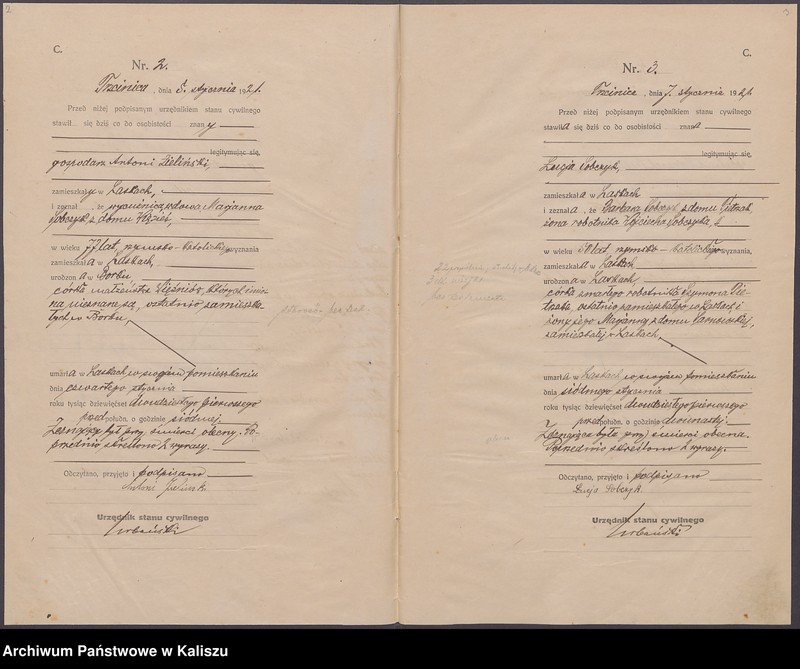 2
C.
Nr. 2.
Trzcinica, dnia 5. stycznia 1921.
Przed niżej podpisanym urzędnikiem stanu cywilnego
stawił się dziś co do osobistości znany
legitymując się,
gospodarz Antoni Zieliński,
zamieszkały w Laskach,
i zeznał, że wdowa, Marjanna
Sobczyk z domu
w wieku 77 lat, rzymsko-katolickiego wyznania
zamieszkała w Laskach,
urodzona w Borku
córka małżeństwa
nieznane są, ostatnio zamieszka-
łych w Borku,
umarła w Laskach w swojem pomieszkaniu
dnia czwartego stycznia
roku tysiąc dziewięćset dwudziestego pierwszego
przed połudn. o godzinie siódmej.
Zeznający był przy śmierci obecny. Po-
przednio skreślono 2 wyrazy.
Odczytano, przyjęto i podpisano
Antoni Zieliński
Urzędnik stanu cywilnego
Urbański
3
C.
Nr. 3.
Trzcinica, dnia 7. stycznia 1921.
Przed niżej podpisanym urzędnikiem stanu cywilnego
stawiła się dziś co do osobistości znana
legitymując się,
Łucja Sobczyk,
zamieszkała w Laskach
i zeznała, że Barbara Sobczyk z domu Pietrzak,
żona robotnika Wojciecha Sobczyka,
w wieku 50 lat, rzymsko-katolickiego wyznania,
zamieszkała w Laskach
urodzona w Laskach,
córka zmarłego robotnika Szymona Pie-
trzaka, ostatnio zamieszkałego w Laskach i
żony jego Marjanny z domu
zamieszkałej w Laskach,
umarła w Laskach w swojem pomieszkaniu
dnia siódmego stycznia
roku tysiąc dziewięćset dwudziestego pierwszego
przed połudn. o godzinie dwunastej.
Zeznająca była przy śmierci obecna.
Poprzednio skreślono 2 wyrazy.
Odczytano, przyjęto i podpisano
Łucja Sobczyk
Urzędnik stanu cywilnego
Urbański
Archiwum Państwowe w Kaliszu